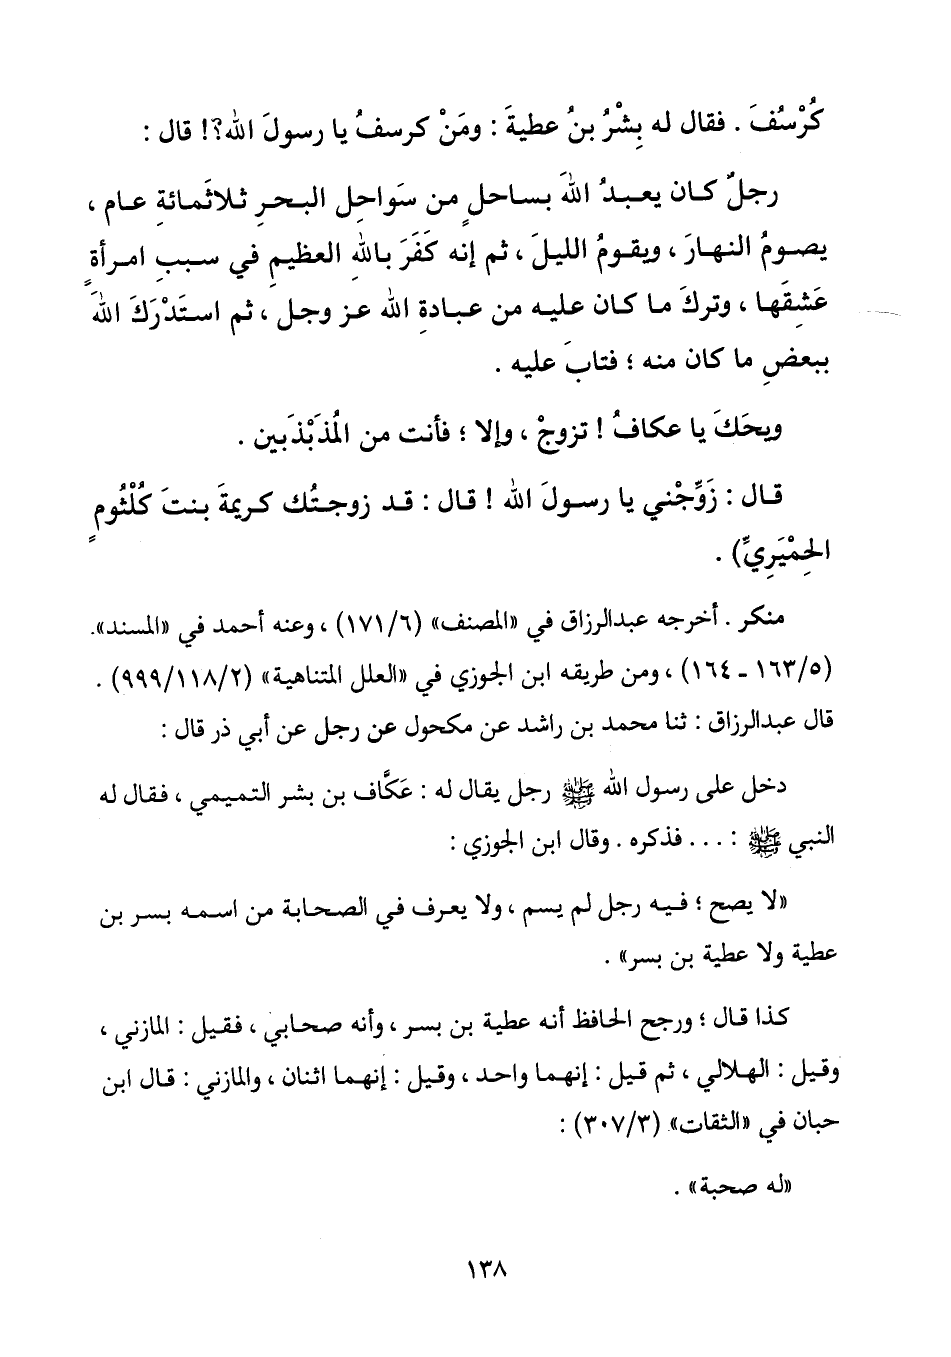 كُرْسُفَ . فقال له بِشْرُ بنُ عطيةَ : ومَنْ كرسفُ يا رسولَ الله؟! قال :
رجلٌ كان يعبدُ اللهَ بساحلٍ من سَواحلِ البحرِ ثلاثَمائةِ عام ،
يصومُ النهارَ ، ويقومُ الليلَ ، ثم إنه كَفَرَ باللهِ العظيمِ في سببِ امرأةٍ
عَشِقَها ، وتركَ ما كان عليه من عبادةِ الله عز وجل ، ثم استَدْرَكَ اللهَ
ببعضِ ما كان منه ؛ فتابَ عليه .
ويحَكَ يا عكافُ ! تزوجْ ، وإلا ؛ فأنت من المُذَبْذَبين .
قال : زَوِّجْني يا رسولَ الله ! قال : قد زوجتُك كريمةَ بنتَ كُلْثُومٍ
الحِمْيَرِيِّ) .
منكر . أخرجه عبدالرزاق في «المصنف» (٦/ ١٧١) ، وعنه أحمد في «المسند».
(٥/ ١٦٣ - ١٦٤) ، ومن طريقه ابن الجوزي في «العلل المتناهية» (٢/ ١١٨/ ٩٩٩) .
قال عبدالرزاق : ثنا محمد بن راشد عن مكحول عن رجل عن أبي ذر قال :
دخل على رسول الله ﷺ رجل يقال له : عَكَّاف بن بشر التميمي ، فقال له
النبي ﷺ : ... فذكره . وقال ابن الجوزي :
«لا يصح ؛ فيه رجل لم يسم ، ولا يعرف في الصحابة من اسمه بسر بن
عطية ولا عطية بن بسر» .
كذا قال ؛ ورجح الحافظ أنه عطية بن بسر ، وأنه صحابي ، فقيل : المازني ،
وقيل : الهلالي ، ثم قيل : إنهما واحد ، وقيل : إنهما اثنان ، والمازني : قال ابن
حبان في «الثقات» (٣/ ٣٠٧) :
«له صحبة» .
١٣٨